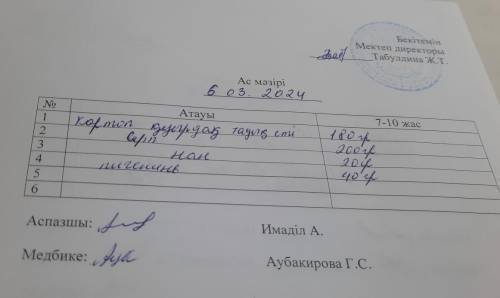 Бекітемін
Мектеп директоры
Табуллина Ж.Т.
Ас мәзірі
6 03. 2024
№ Атауы 7-10 жас
1 картоп қуырдақ тауық еті 180 гр
2 Сирп 200 гр
3 нан 20 гр
4 печенье 40 гр
5
6
Аспазшы: Имаділ А.
Медбике: Аубакирова Г.С.